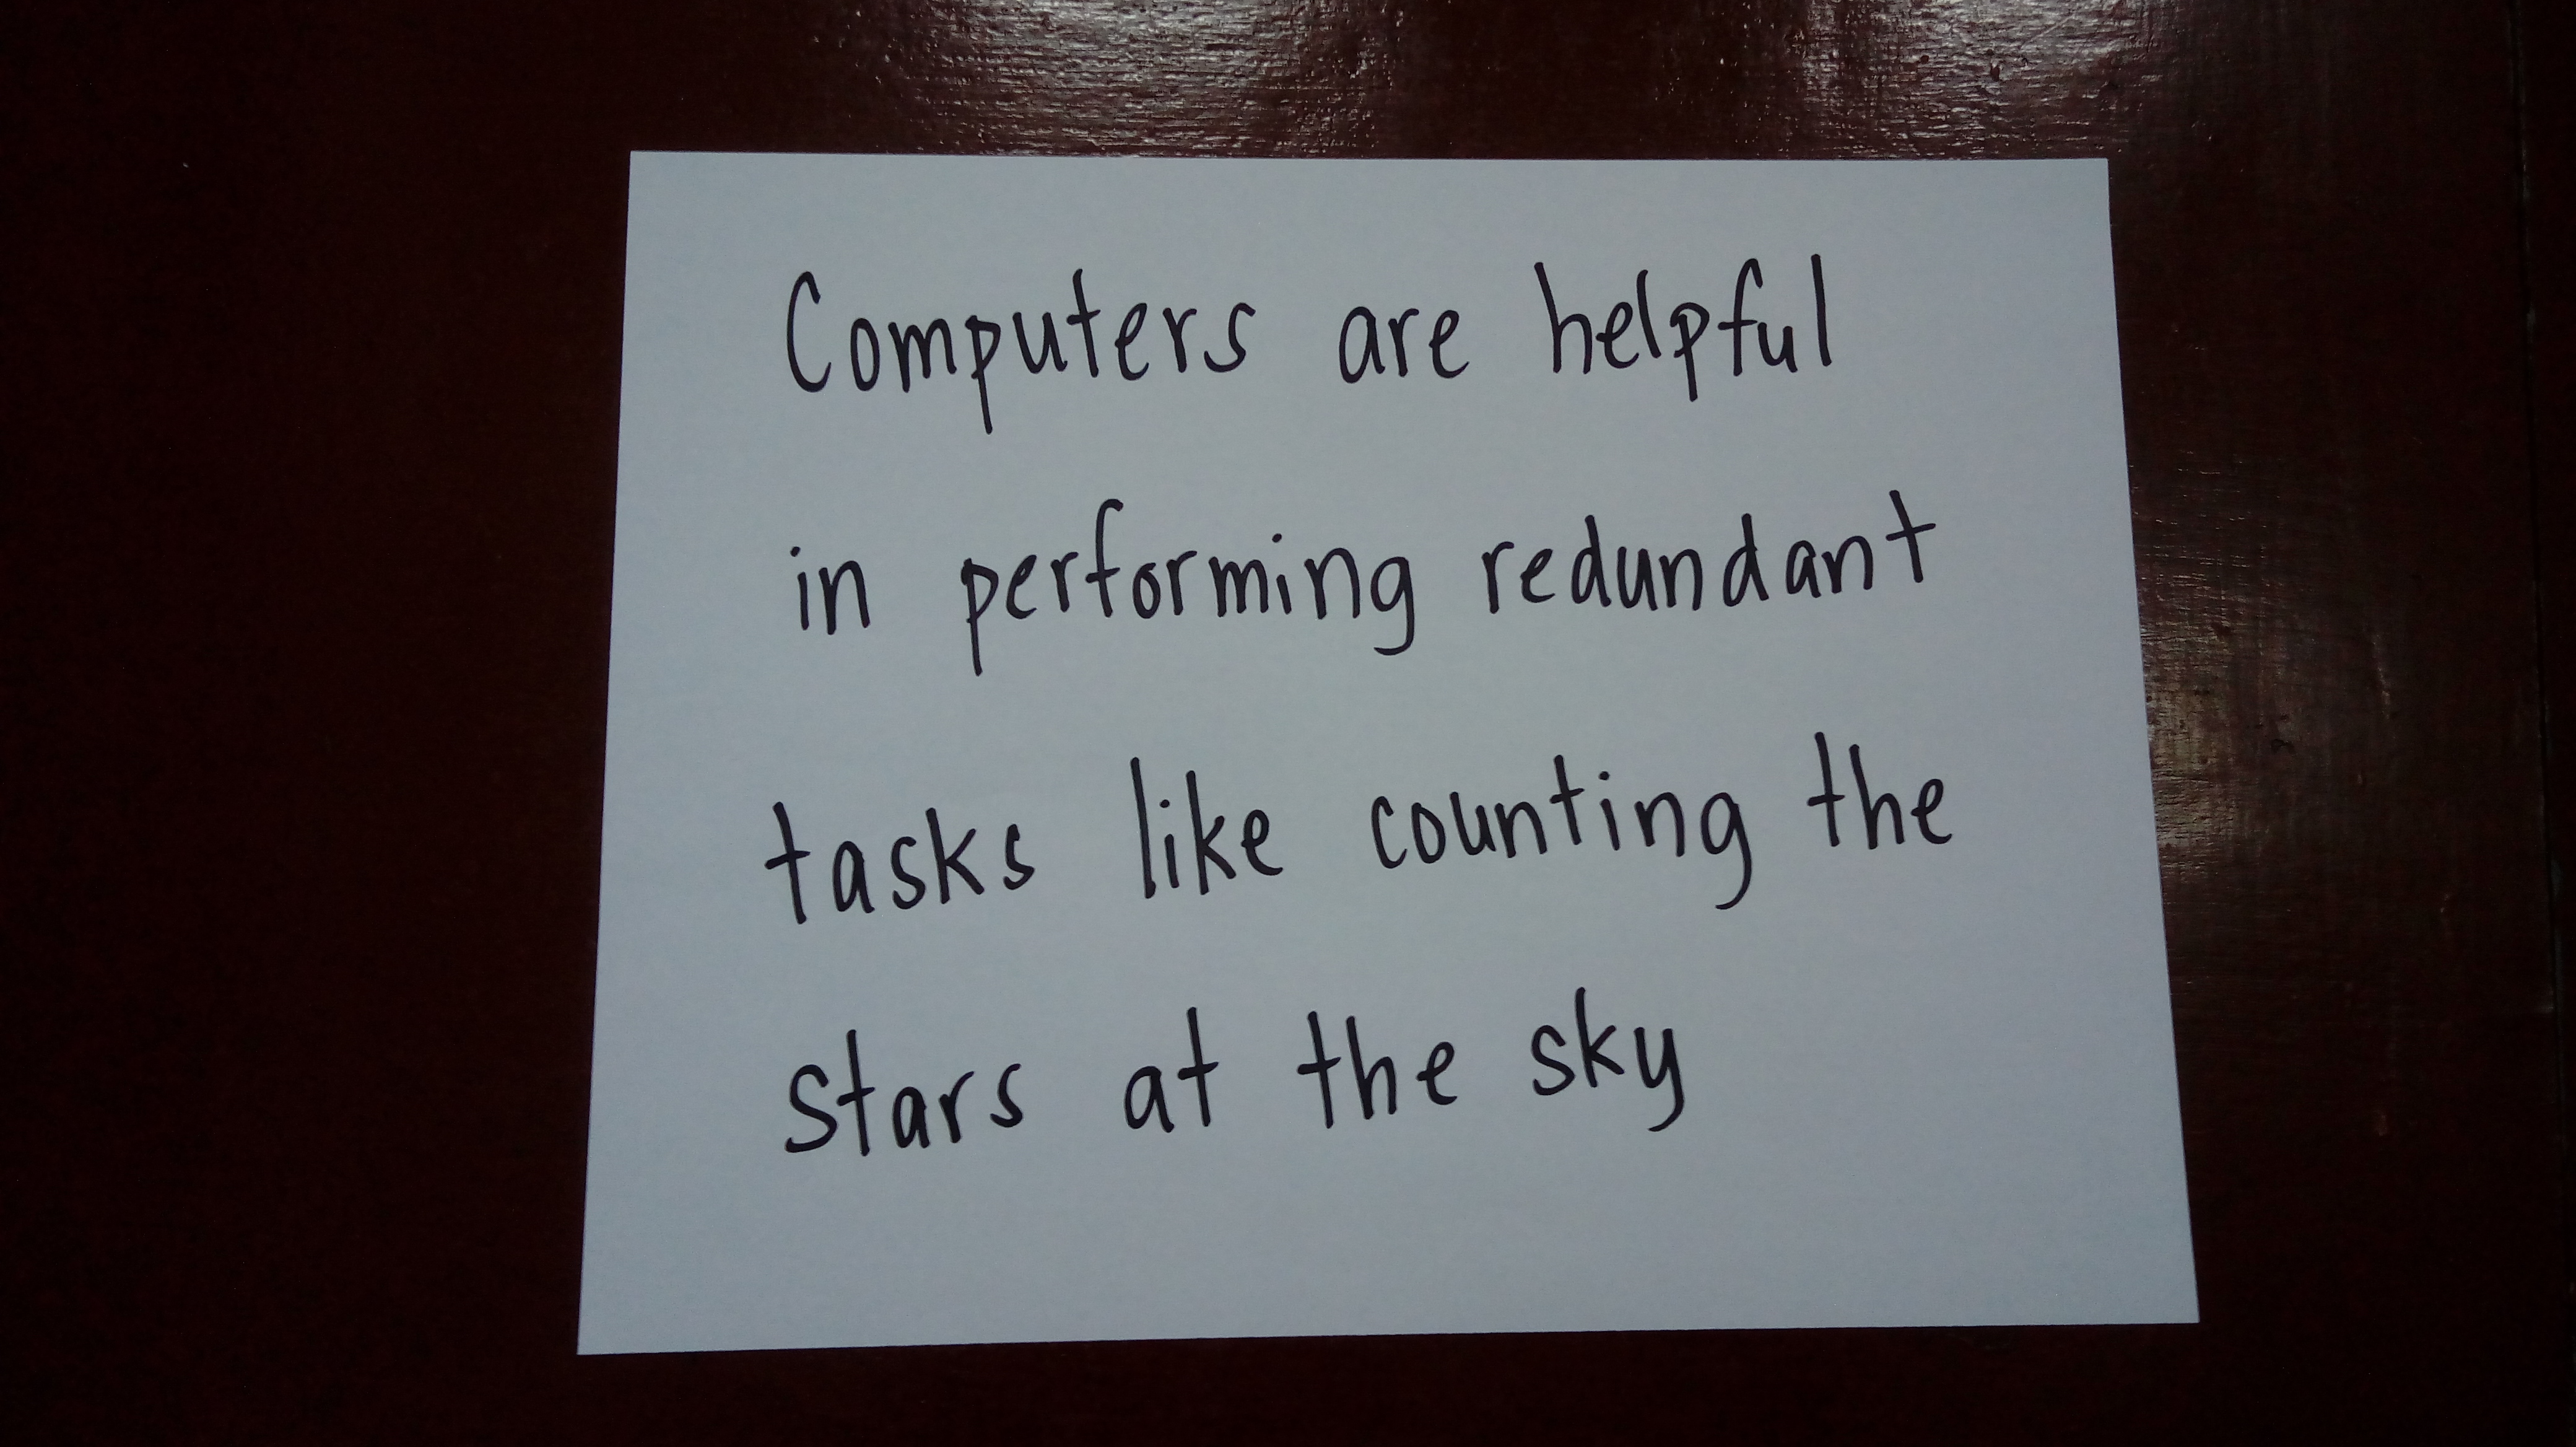 Computers are helpful
in performing redundant
tasks like counting the
stars at the sky